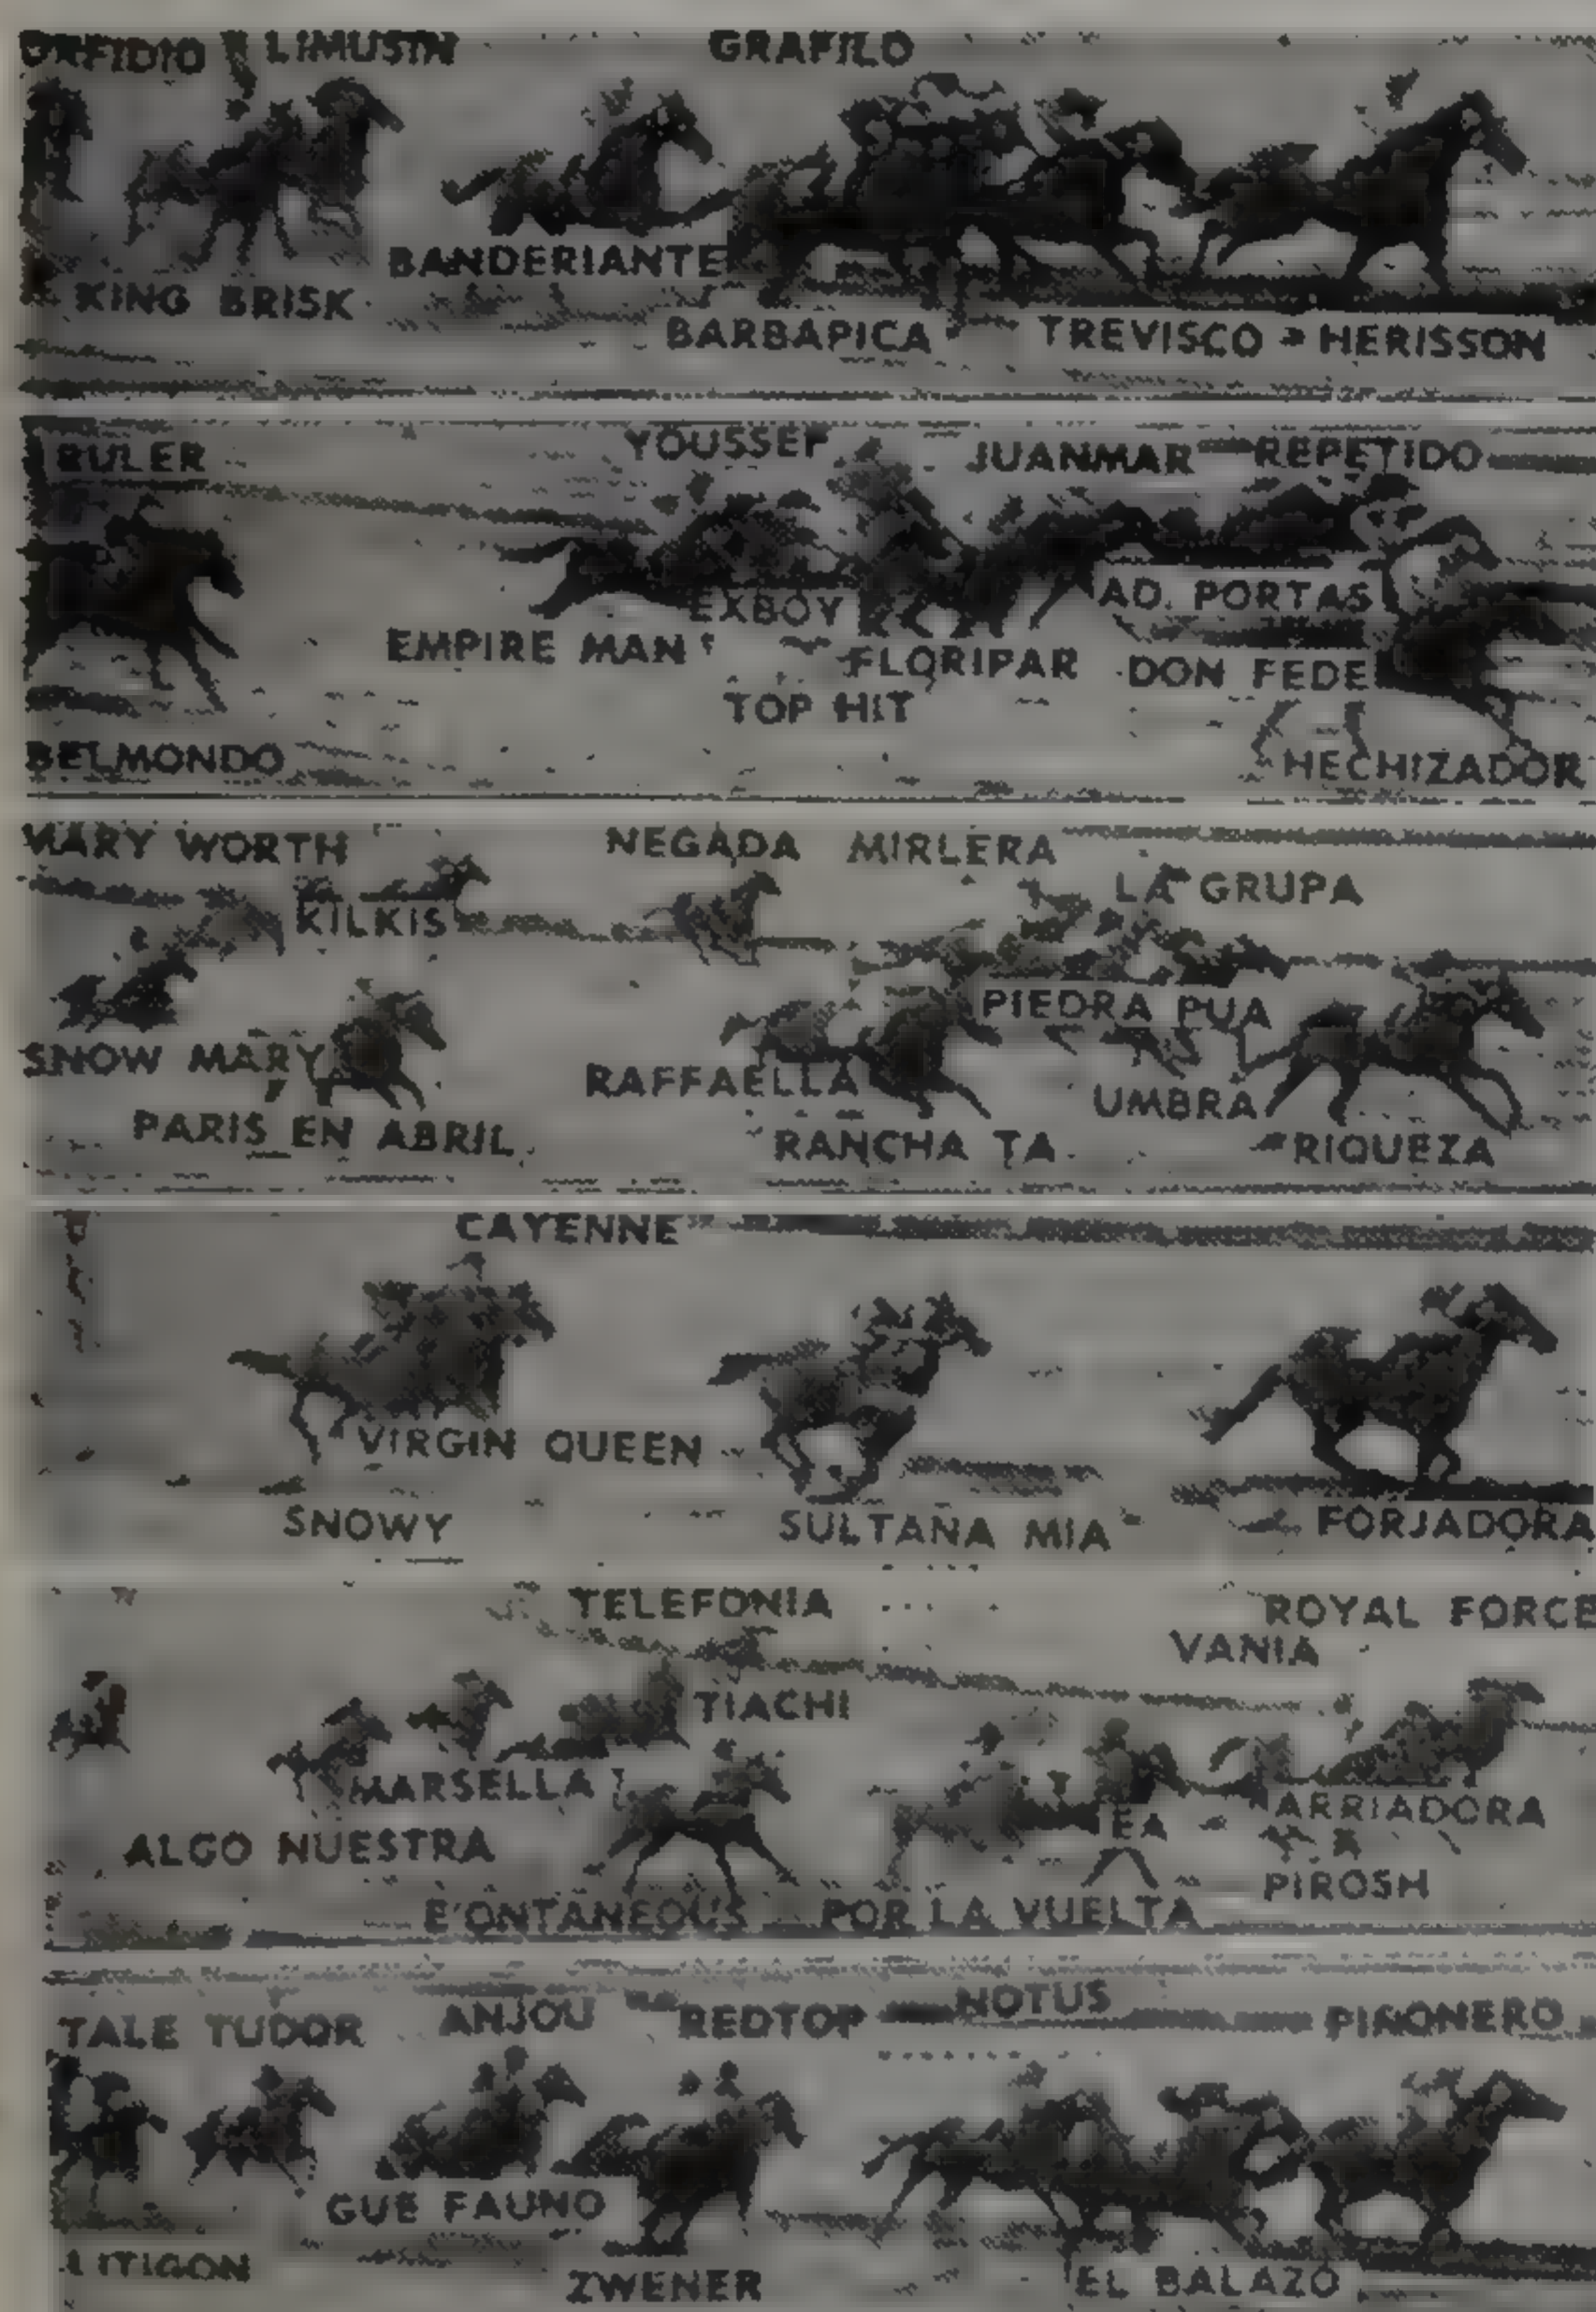 LIMUSIN
GRAFILO
BANDERIANTE
KING BRISK
BARBAPICA
TREVISCO - HERISSON
RULER
YOUSSEF
JUANMAR
REPETIDO
EXBOY
AD. PORTAS
EMPIRE MAN
FLORIPAR
DON FEDE
TOP HIT
BELMONDO
HECHIZADOR
MARY WORTH
NEGADA
MIRLERA
LA GRUPA
KILKIS
PIEDRA PUA
SNOW MARY
RAFFAELLA
UMBRA
PARIS EN ABRIL
RANCHA TA
RIQUEZA
CAYENNE
VIRGIN QUEEN
SNOWY
SULTANA MIA
FORJADORA
TELEFONIA
ROYAL FORCE
VANIA
TIACHI
MARSELLA
EA
ARRIADORA
ALGO NUESTRA
PIROSH
POR LA VUELTA
TALE TUDOR
ANJOU
REDTOP
NOTUS
PIÑONERO
GUE FAUNO
LITIGON
ZWENER
EL BALAZO